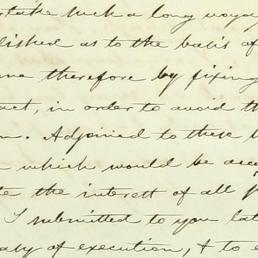 take such a long voya
lished as to the basis of
me therefore by fixing
act, in order to avoid th
n. Adjoined to these b
which would be acc
te the interest of all p
I submitted to you lat
aty of execution, & to e